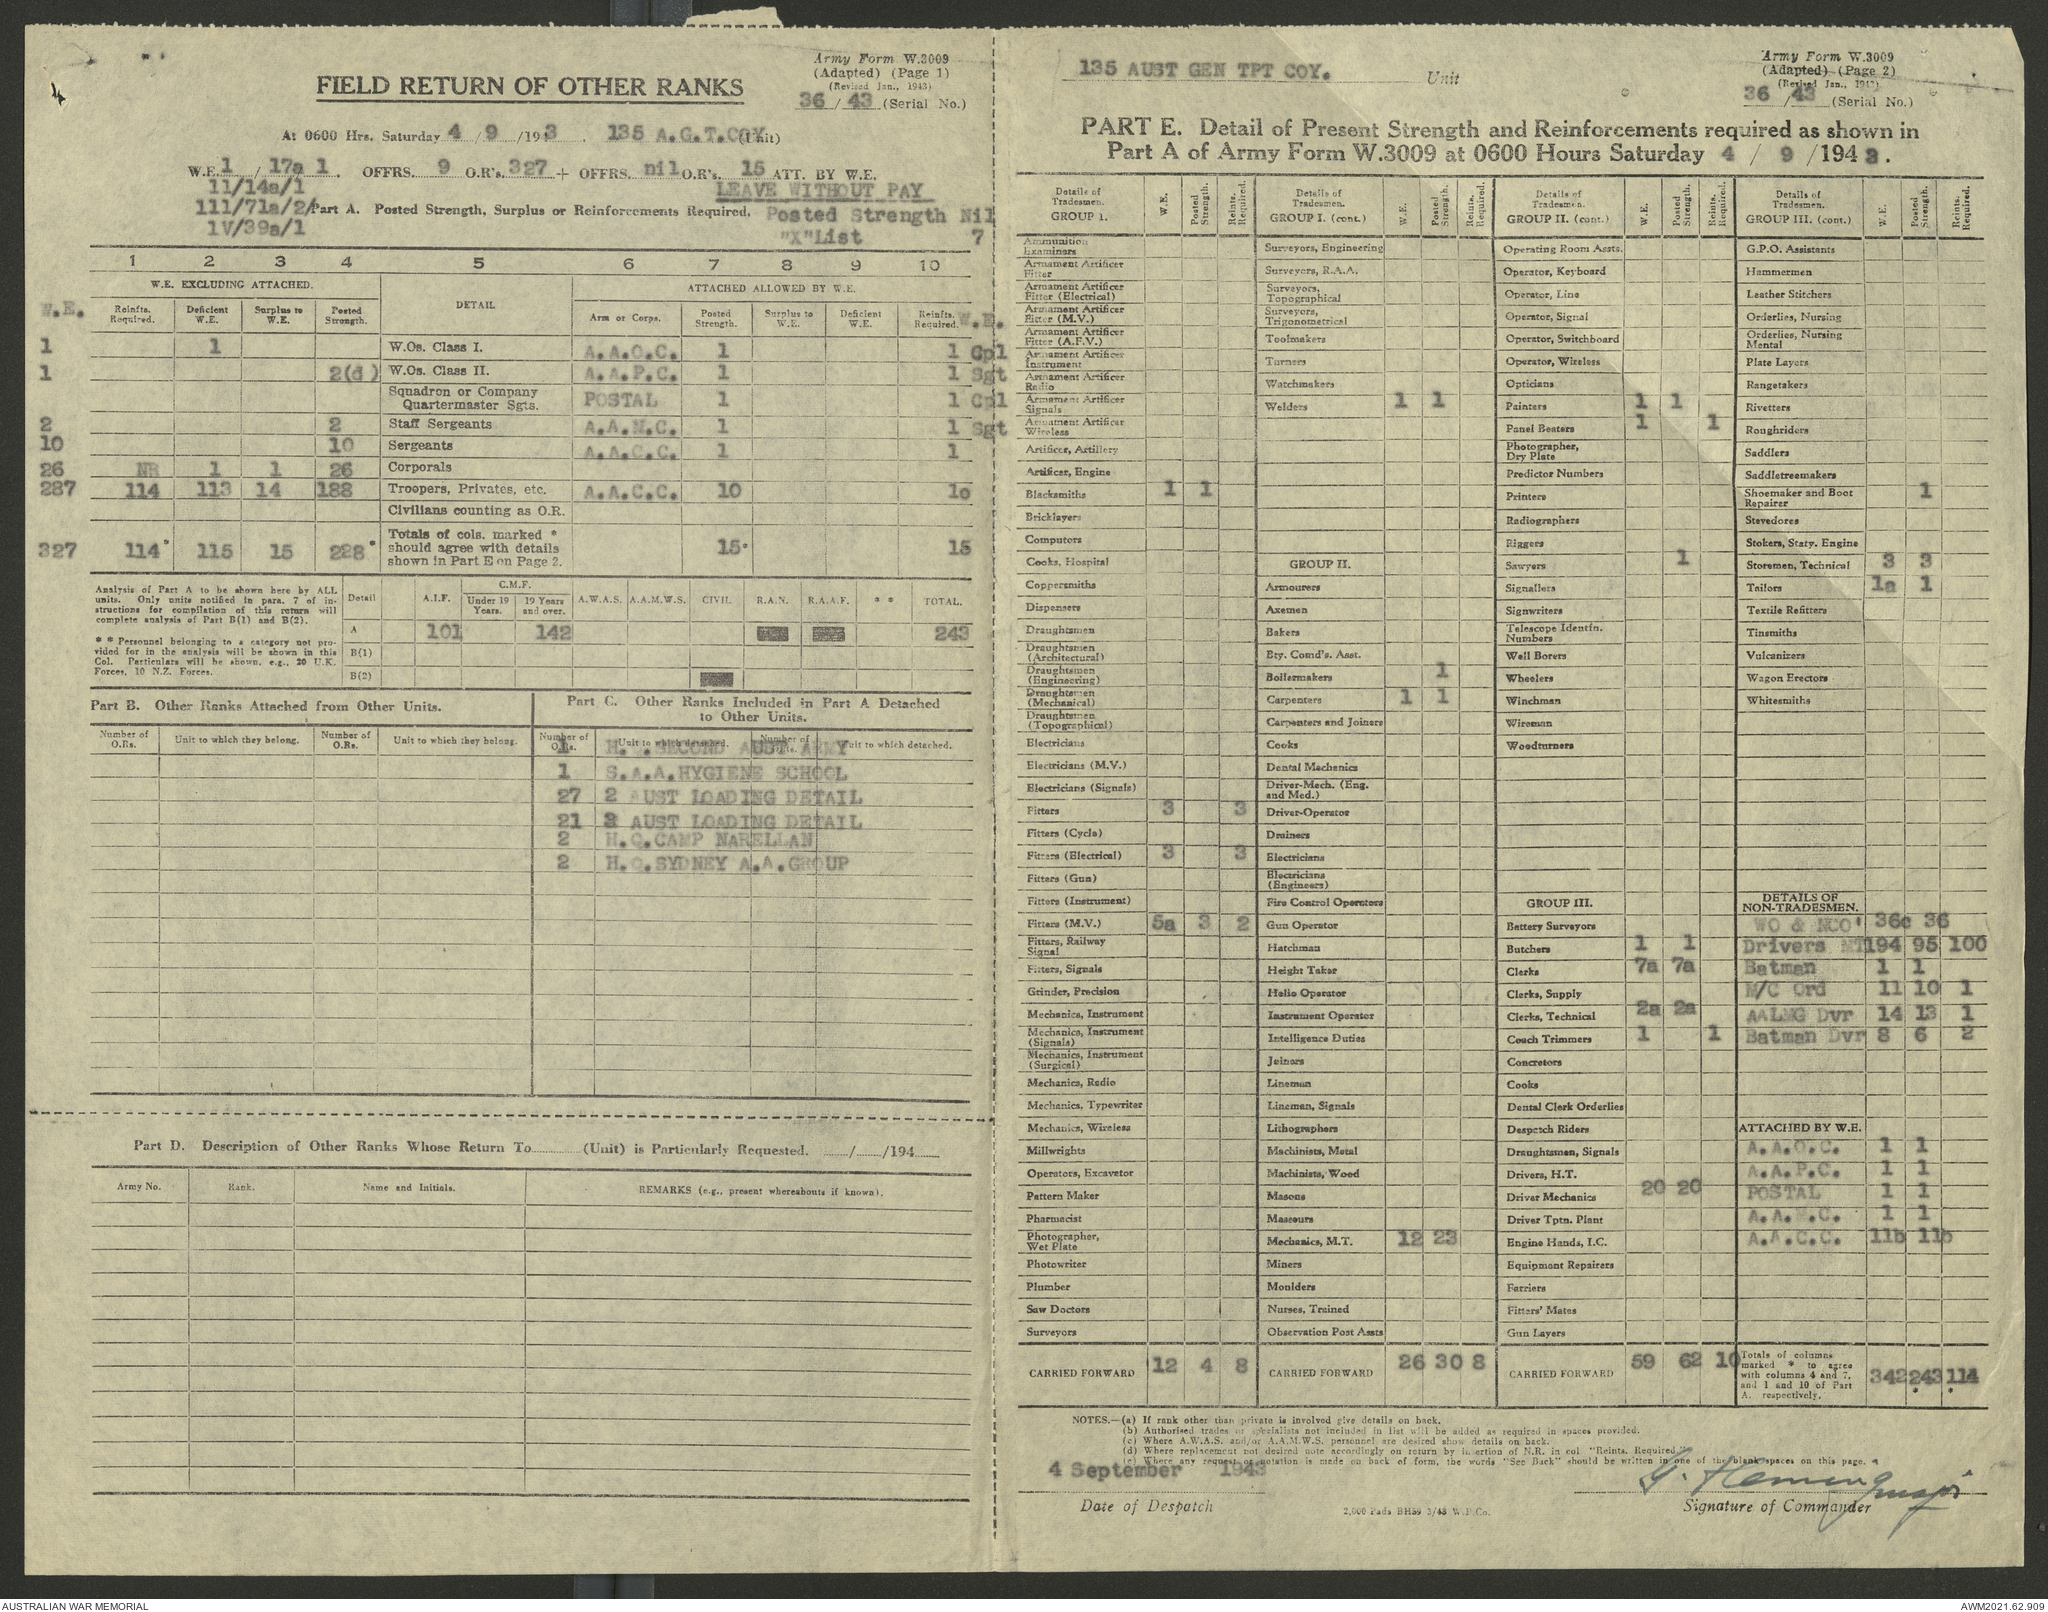 Army Form W.3009
(Adapted) (Page 1)
(Revised Jan., 1943)
36 / 43 (Serial No.)
FIELD RETURN OF OTHER RANKS
At 0600 Hrs. Saturday 4 / 9 /1943. 135 A.G.T.COY. (Unit)
W.E. 1 / 17a 1. OFFRS. 9 O.R's. 327 + OFFRS. nil O.R's. 15 ATT. BY W.E.
11/14a/1 LEAVE WITHOUT PAY
111/71a/2/ Part A. Posted Strength, Surplus or Reinforcements Required. Posted Strength Nil
1V/39a/1 "X"List 7
1 2 3 4 5 6 7 8 9 10
W.E. EXCLUDING ATTACHED. DETAIL ATTACHED ALLOWED BY W.E.
W.E. Reinfts. Required. Deficient W.E. Surplus to W.E. Posted Strength. Arm or Corps. Posted Strength. Surplus to W.E. Deficient W.E. Reinfts. Required. W.E.
1 1 W.Os. Class I. A.A.O.C. 1 1 Cpl
1 2(d) W.Os. Class II. A.A.P.C. 1 1 Sgt
Squadron or Company Quartermaster Sgts. POSTAL 1 1 Cpl
2 2 Staff Sergeants A.A.M.C. 1 1 Sgt
10 10 Sergeants A.A.C.C. 1 1
26 NR 1 1 26 Corporals
287 114 113 14 188 Troopers, Privates, etc. A.A.C.C. 10 1o
Civilians counting as O.R.
327 114* 115 15 228* Totals of cols. marked * should agree with details shown in Part E on Page 2. 15* 15
Analysis of Part A to be shown here by ALL units. Only units notified in para. 7 of instructions for compilation of this return will complete analysis of Part B(1) and B(2).
* * Personnel belonging to a category not provided for in the analysis will be shown in this Col. Particulars will be shown, e.g., 20 U.K. Forces, 10 N.Z. Forces.
Detail A.I.F. C.M.F. Under 19 Years. 19 Years and over. A.W.A.S. A.A.M.W.S. CIVIL. R.A.N. R.A.A.F. * * TOTAL.
A 101 142 243
B(1)
B(2)
Part B. Other Ranks Attached from Other Units.
Number of O.Rs. Unit to which they belong. Number of O.Rs. Unit to which they belong.
Part C. Other Ranks Included in Part A Detached to Other Units.
Number of O.Rs. Unit to which detached. Number of O.Rs. Unit to which detached.
1 H.Q.SECOND AUST ARMY
1 S.A.A.HYGIENE SCHOOL
27 2 AUST LOADING DETAIL
21 3 AUST LOADING DETAIL
2 H.Q.CAMP NARELLAN
2 H.Q.SYDNEY A.A.GROUP
Part D. Description of Other Ranks Whose Return To (Unit) is Particularly Requested. / /194
Army No. Rank. Name and Initials. REMARKS (e.g., present whereabouts if known).
135 AUST GEN TPT COY. Unit
Army Form W.3009
(Adapted) (Page 2)
(Revised Jan., 1943)
36 / 43 (Serial No.)
PART E. Detail of Present Strength and Reinforcements required as shown in
Part A of Army Form W.3009 at 0600 Hours Saturday 4 / 9 /1943.
Details of Tradesmen. GROUP I. W.E. Posted Strength. Reints. Required.
Ammunition Examiners
Armament Artificer Fitter
Armament Artificer Fitter (Electrical)
Armament Artificer Fitter (M.V.)
Armament Artificer Fitter (A.F.V.)
Armament Artificer Instrument
Armament Artificer Radio
Armament Artificer Signals
Armament Artificer Wireless
Artificer, Artillery
Artificer, Engine
Blacksmiths 1 1
Bricklayers
Computors
Cooks, Hospital
Coppersmiths
Dispensers
Draughtsmen
Draughtsmen (Architectural)
Draughtsmen (Engineering)
Draughtsmen (Mechanical)
Draughtsmen (Topographical)
Electricians
Electricians (M.V.)
Electricians (Signals)
Fitters 3 3
Fitters (Cycle)
Fitters (Electrical) 3 3
Fitters (Gun)
Fitters (Instrument)
Fitters (M.V.) 5a 3 2
Fitters, Railway Signal
Fitters, Signals
Grinder, Precision
Mechanics, Instrument
Mechanics, Instrument (Signals)
Mechanics, Instrument (Surgical)
Mechanics, Radio
Mechanics, Typewriter
Mechanics, Wireless
Millwrights
Operators, Excavator
Pattern Maker
Pharmacist
Photographer, Wet Plate
Photowriter
Plumber
Saw Doctors
Surveyors
CARRIED FORWARD 12 4 8
Details of Tradesmen. GROUP I. (cont.) W.E. Posted Strength. Reints. Required.
Surveyors, Engineering
Surveyors, R.A.A.
Surveyors, Topographical
Surveyors, Trigonometrical
Toolmakers
Turners
Watchmakers
Welders 1 1
GROUP II.
Armourers
Axemen
Bakers
Bty. Comd's. Asst.
Boilermakers 1
Carpenters 1 1
Carpenters and Joiners
Cooks
Dental Mechanics
Driver-Mech. (Eng. and Med.)
Driver-Operator
Drainers
Electricians
Electricians (Engineers)
Fire Control Operators
Gun Operator
Hatchman
Height Taker
Helio Operator
Instrument Operator
Intelligence Duties
Joiners
Lineman
Lineman, Signals
Lithographers
Machinists, Metal
Machinists, Wood
Masons
Masseurs
Mechanics, M.T. 12 23
Miners
Moulders
Nurses, Trained
Observation Post Assts
CARRIED FORWARD 26 30 8
Details of Tradesmen. GROUP II. (cont.) W.E. Posted Strength. Reints. Required.
Operating Room Assts.
Operator, Keyboard
Operator, Line
Operator, Signal
Operator, Switchboard
Operator, Wireless
Opticians
Painters 1 1
Panel Beaters 1 1
Photographer, Dry Plate
Predictor Numbers
Printers
Radiographers
Riggers
Sawyers 1
Signallers
Signwriters
Telescope Identfn. Numbers
Well Borers
Wheelers
Winchman
Wireman
Woodturners
GROUP III.
Battery Surveyors
Butchers 1 1
Clerks 7a 7a
Clerks, Supply
Clerks, Technical 2a 2a
Couch Trimmers 1 1
Concretors
Cooks
Dental Clerk Orderlies
Despatch Riders
Draughtsmen, Signals
Drivers, H.T.
Driver Mechanics 20 20
Driver Tptn. Plant
Engine Hands, I.C.
Equipment Repairers
Farriers
Fitters' Mates
Gun Layers
CARRIED FORWARD 59 62 10
Details of Tradesmen. GROUP III. (cont.) W.E. Posted Strength. Reints. Required.
G.P.O. Assistants
Hammermen
Leather Stitchers
Orderlies, Nursing
Orderlies, Nursing Mental
Plate Layers
Rangetakers
Rivetters
Roughriders
Saddlers
Saddletreemakers
Shoemaker and Boot Repairer 1
Stevedores
Stokers, Staty. Engine
Storemen, Technical 3 3
Tailors 1a 1
Textile Refitters
Tinsmiths
Vulcanizers
Wagon Erectors
Whitesmiths
DETAILS OF NON-TRADESMEN.
WO & NCO' 36c 36
Drivers MT 194 95 100
Batman 1 1
M/C Ord 11 10 1
AALMG Dvr 14 13 1
Batman Dvr 8 6 2
ATTACHED BY W.E.
A.A.O.C. 1 1
A.A.P.C. 1 1
POSTAL 1 1
A.A.M.C. 1 1
A.A.C.C. 11b 11b
Totals of columns marked * to agree with columns 4 and 7, and 1 and 10 of Part A. respectively. 342 243* 114*
NOTES.—(a) If rank other than private is involved give details on back.
(b) Authorised trades or specialists not included in list will be added as required in spaces provided.
(c) Where A.W.A.S. and/or A.A.M.W.S. personnel are desired show details on back.
(d) Where replacement not desired note accordingly on return by insertion of N.R. in col "Reints. Required
(e) Where any request or notation is made on back of form, the words "See Back" should be written in one of the blank spaces on this page.
4 September 1943
Date of Despatch
2,000 Pads BH59 3/43 W.P.Co.
G. Fleming Major
Signature of Commander
AUSTRALIAN WAR MEMORIAL
AWM2021.62.909